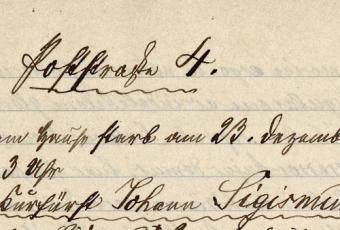 Poststraße 4.
Hause starb am 23. Dezemb
3 Uhr
Kurfürst Johann Sigismu